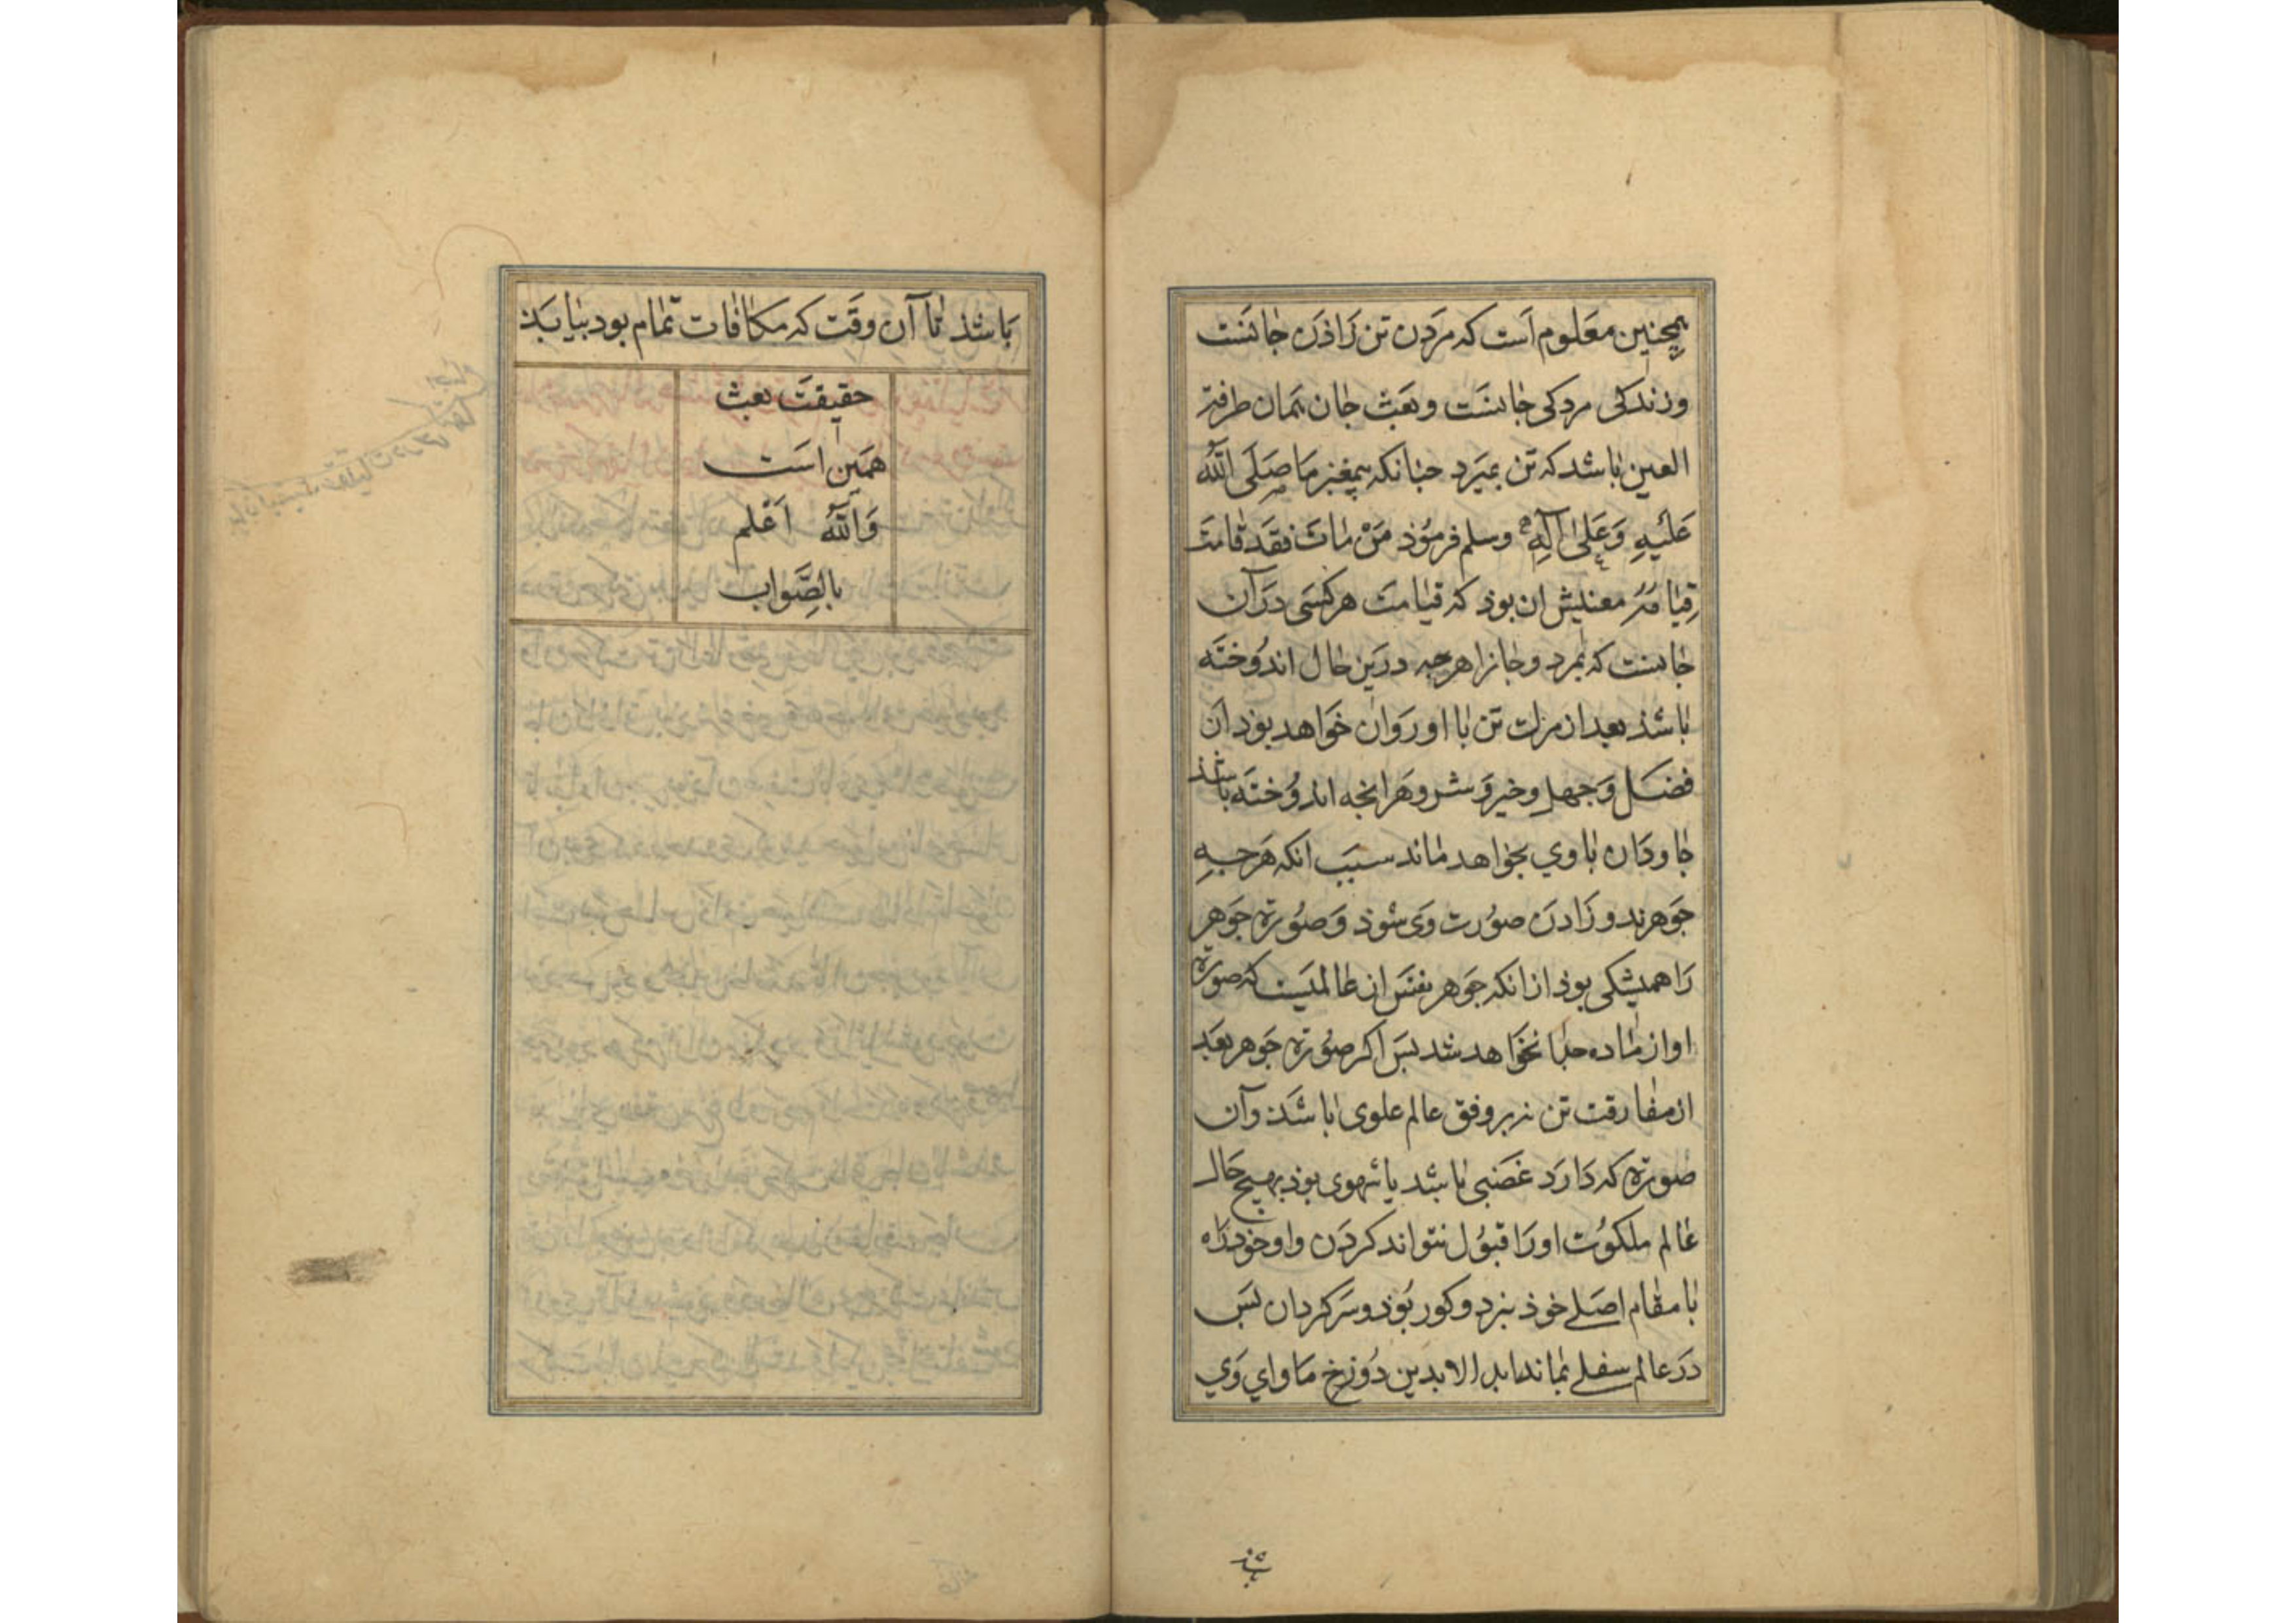 همچنین معلوم است که مردن تن زاذن جانست
و زندکی مردکی جانست و بعث جان همان طرفة
العین باشد که تن بمیرد چنانکه پیغمبر ما صَلَّی اللهُ
عَلَیهِ وَعَلیٰ آلِهِ وسلم فرموُذ مَنْ مٰاتَ فَقَد قٰامَت
قِیٰامَتُهُ معنیش ان بوذ که قیٰامت هرکسی درآن
جانست که بمرد و جانرا هرچه درین حال اندوُخته
باشذ بعد از مرك تن با او روان خواهد بوذ ان
فضل وَجهل و خیر وَ شر و هرانچه اندوُخته باشذ
جاودان باوی بخواهد ماند سبب انکه هرچه
جوهر ندوزاد ن صوُرت وی شوذ وَ صوُرة جوهر
را همیشکی بوذ ازانکه جوهر نفس از عالمیست که صورة
او از ماده جدا نخواهد شد بس اکر صوُرة جوهر بعد
از مفارقت تن نه بر وفق عالم علوی باشذ وآن
صورة که دارد غضبی باشد یا شهوی بوذ بهیچ حال
عالم ملکوُت اورا قبوُل نتواند کردن و او خوذ راه
با مقام اصلی خوذ نبرد و کور بوُذ و سرکردان بس
در عالم سفلی بماند ابد الابدین دوُزخ ماوای وی
باشذ
باشذ تا آن وقت که مکافات تمام بود بیابذ
حقیقت بعث
همین است
وَاللهُ اَعْلم
بالصَّواب